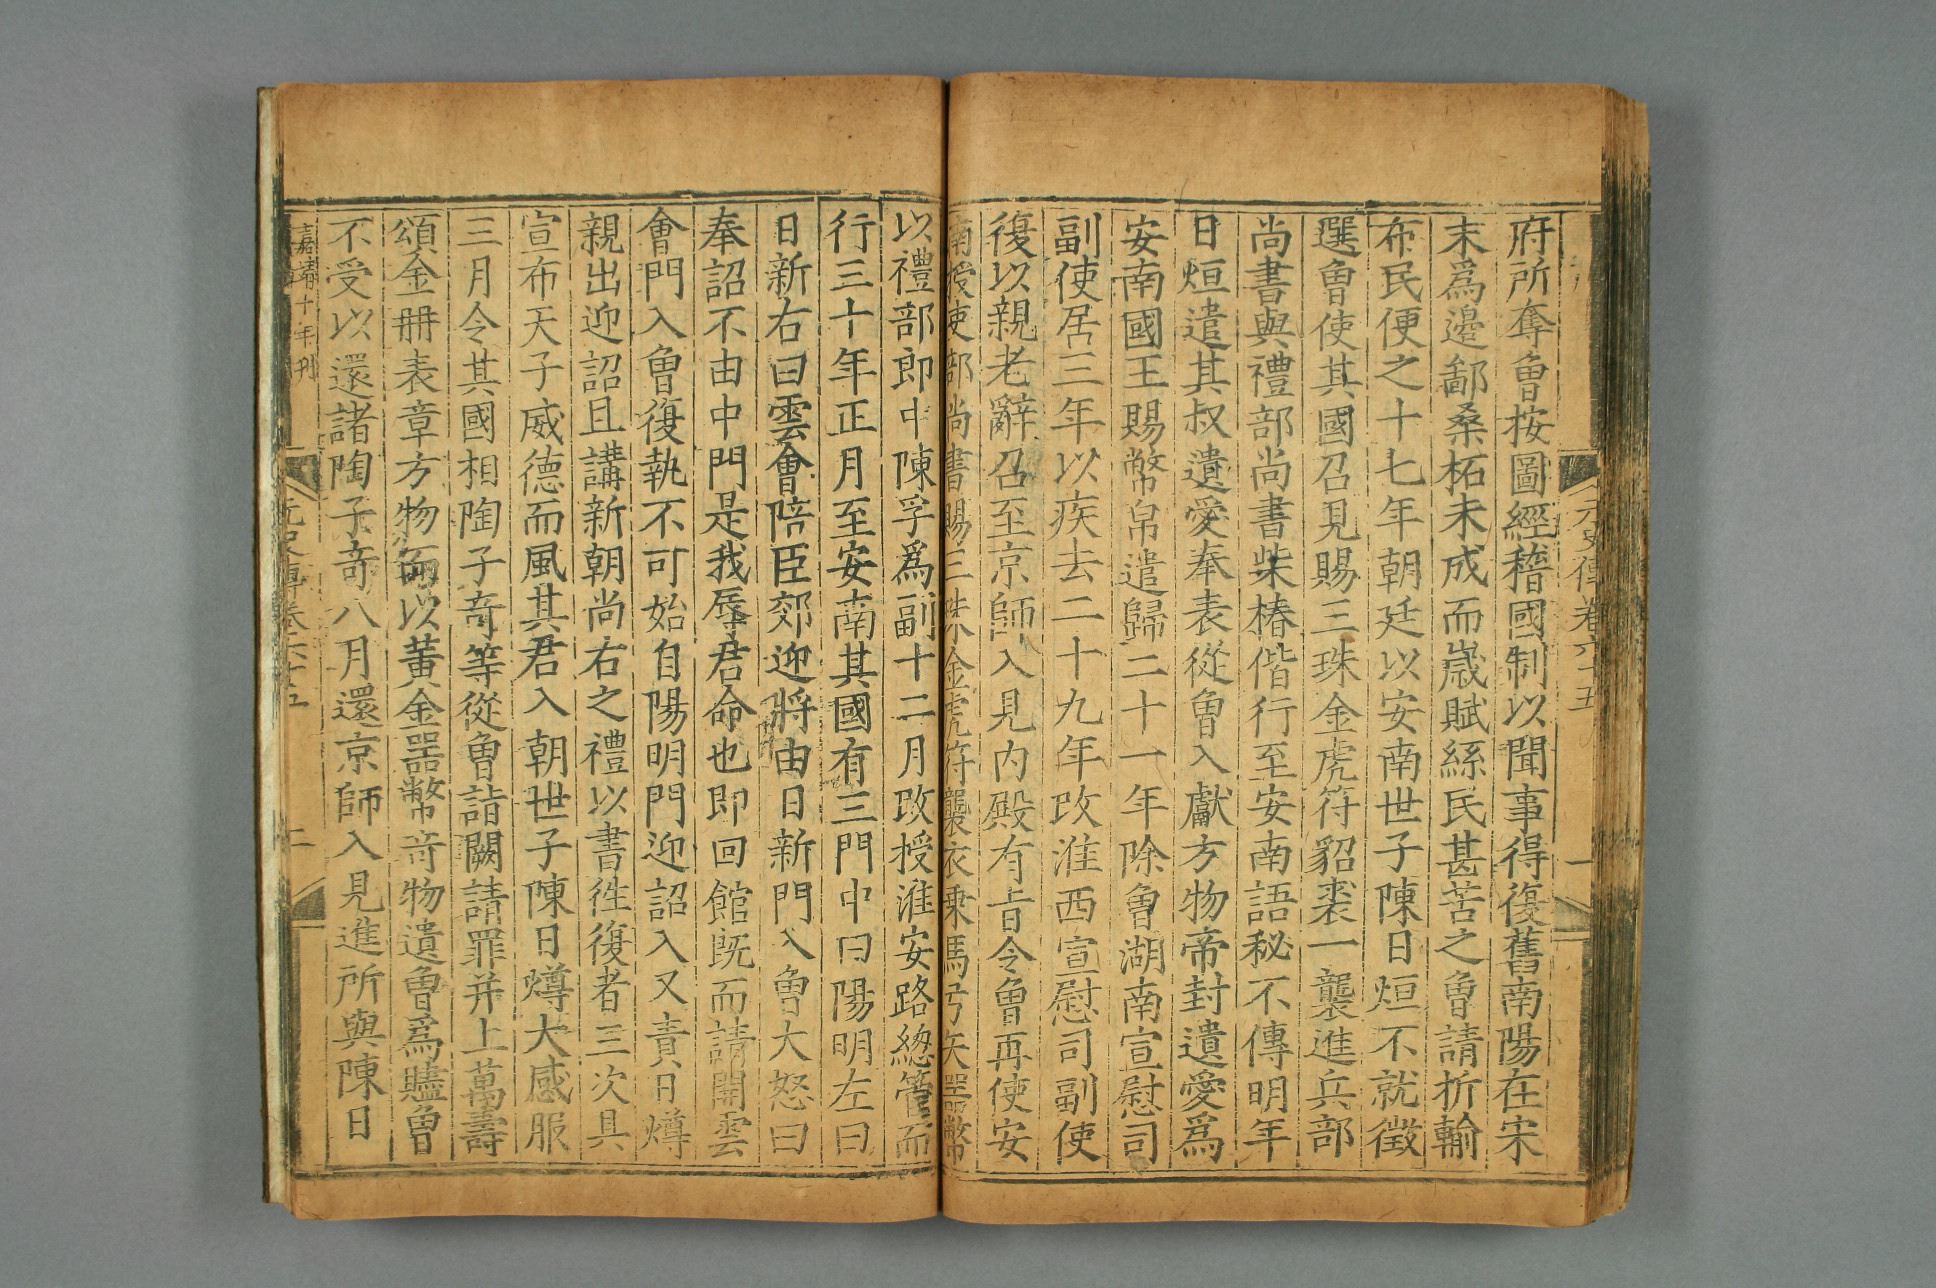 元史傳卷六十五
一
府所奪魯按圖經稽國制以聞事得復舊南陽在宋
末爲邊鄙桑柘未成而歲賦絲民甚苦之魯請折輸
布民便之十七年朝廷以安南世子陳日烜不就徵
選魯使其國召見賜三珠金虎符貂裘一襲進兵部
尚書與禮部尚書柴椿偕行至安南語秘不傳明年
日烜遣其叔遺愛奉表從魯入獻方物帝封遺愛爲
安南國王賜幣帛遣歸二十一年除魯湖南宣慰司
副使居三年以疾去二十九年改淮西宣慰司副使
復以親老辭召至京師入見内殿有旨令魯再使安
南授吏部尚書賜三珠金虎符襲衣乘馬弓矢器幣
以禮部郎中陳孚爲副十二月改授淮安路總管而
行三十年正月至安南其國有三門中曰陽明左曰
日新右曰雲會陪臣郊迎將由日新門入魯大怒曰
奉詔不由中門是我辱君命也即回館既而請開雲
會門入魯復執不可始自陽明門迎詔入又責日燇
親出迎詔且講新朝尚右之禮以書徃復者三次具
宣布天子威德而風其君入朝世子陳日燇大感服
三月令其國相陶子奇等從魯詣闕請罪并上萬壽
頌金冊表章方物而以黃金器幣奇物遺魯爲贐魯
不受以還諸陶子奇八月還京師入見進所與陳日
嘉靖十年刊
元史傳卷六十五
二